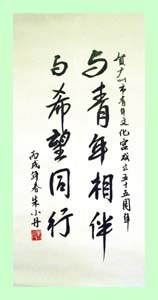 贺广州市青年文化宫成立五十五周年
与青年相伴
与希望同行
丙戌年春朱小丹